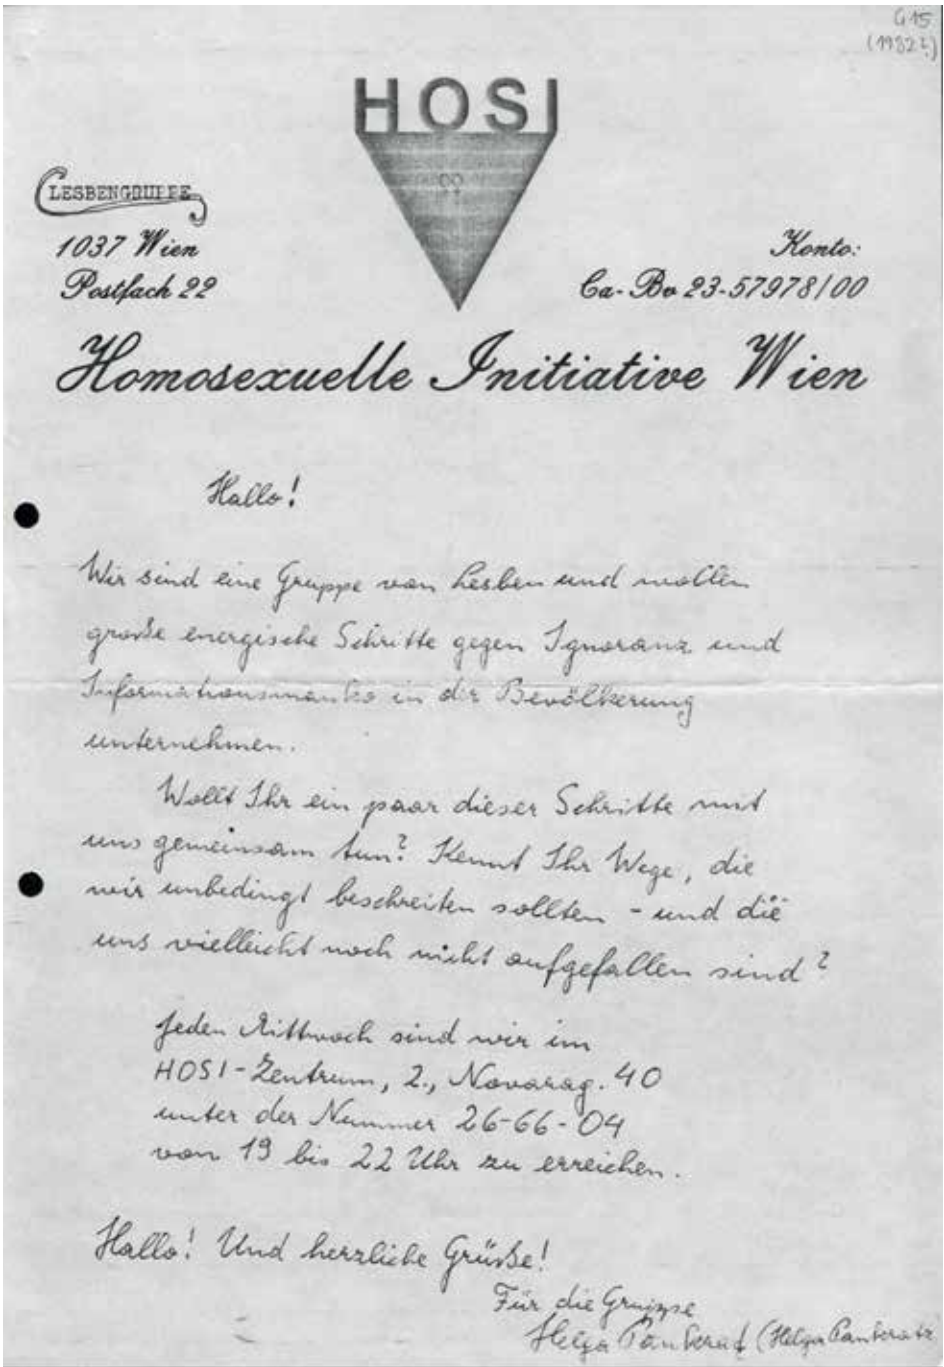 G15
(1982?)
HOSI
LESBENGRUPPE
1037 Wien
Postfach 22
Konto:
Ca-Bv 23-57978/00
Homosexuelle Initiative Wien
Hallo!
Wir sind eine Gruppe von Lesben und wollen
große energische Schritte gegen Ignoranz und
Informationsmanko in der Bevölkerung
unternehmen.
Wollt Ihr ein paar dieser Schritte mit
uns gemeinsam tun? Kennt Ihr Wege, die
wir unbedingt beschreiten sollten - und die
uns vielleicht noch nicht aufgefallen sind?
Jeden Mittwoch sind wir im
HOSI-Zentrum, 2., Novarag. 40
unter der Nummer 26-66-04
von 19 bis 22 Uhr zu erreichen.
Hallo! Und herzliche Grüße!
Für die Gruppe
Helga Pankratz (Helga Pankratz